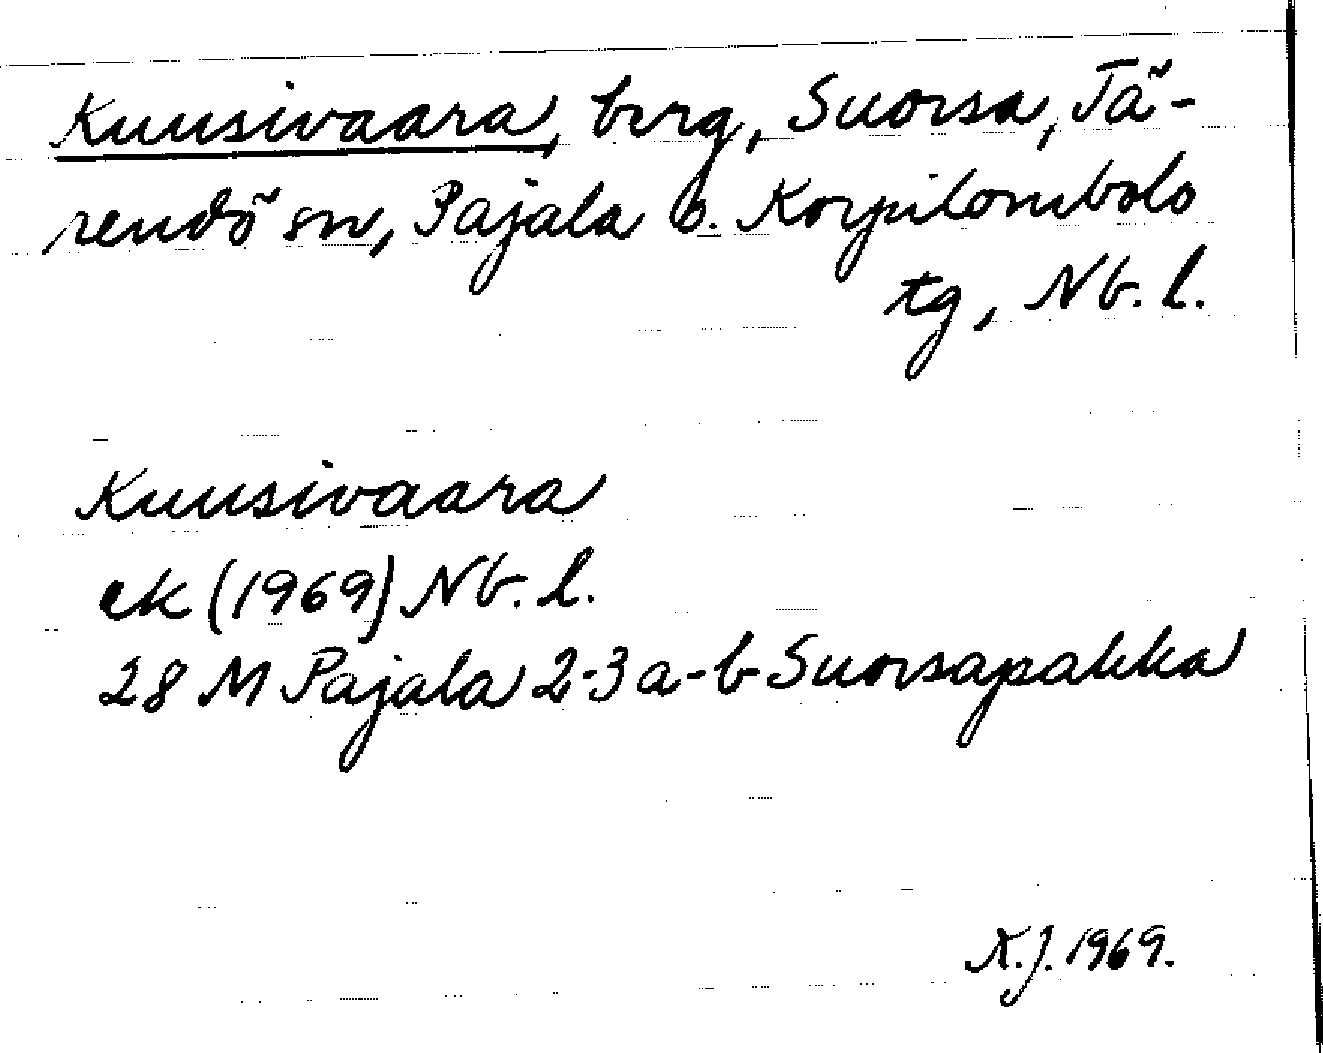 Kuusivaara, berg, Suorsa, Tä-
rendö sn, Pajala o. Korpilombolo
tg, Nb. l.
Kuusivaara
ek (1969) Nb. l.
28 M Pajala 2-3 a-b Suorsapakka
K.J. 1969.